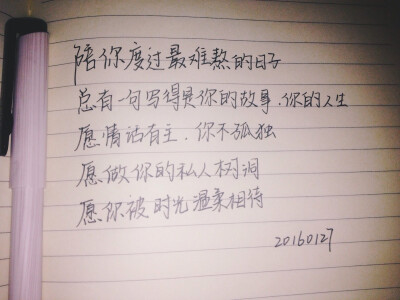 陪你度过最难熬的日子
总有一句写得是你的故事.你的人生
愿情话有主.你不孤独
愿做你的私人树洞
愿你被时光温柔相待
20160127